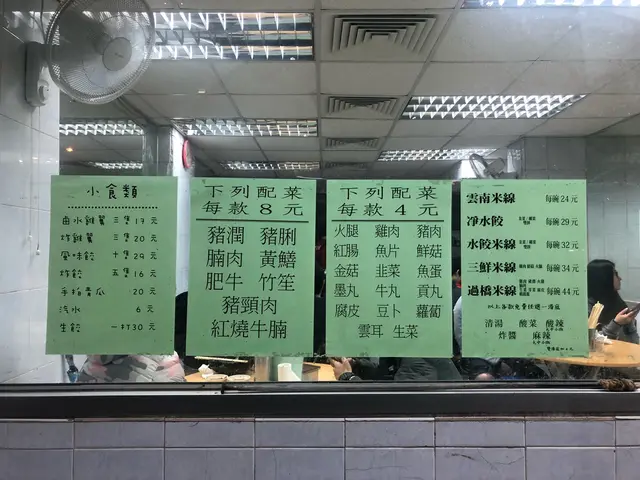 小食類
鹵水雞翼 三隻 17元
炸雞翼 三隻 20元
風味餃 十隻 24元
炸餃 五隻 16元
手拍青瓜 20元
汽水 6元
生餃 一打30元
下列配菜
每款8元
豬潤 豬脷
腩肉 黃鱔
肥牛 竹笙
豬頸肉
紅燒牛腩
下列配菜
每款4元
火腿 雞肉 豬肉
紅腸 魚片 鮮菇
金菇 韭菜 魚蛋
墨丸 牛丸 貢丸
腐皮 豆卜 蘿蔔
雲耳 生菜
雲南米線 每碗24元
凈水餃 每碗29元
水餃米線 每碗32元
三鮮米線 每碗34元
過橋米線 每碗44元
以上各款免費任選一湯底
清湯 酸菜 酸辣
炸醬 麻辣